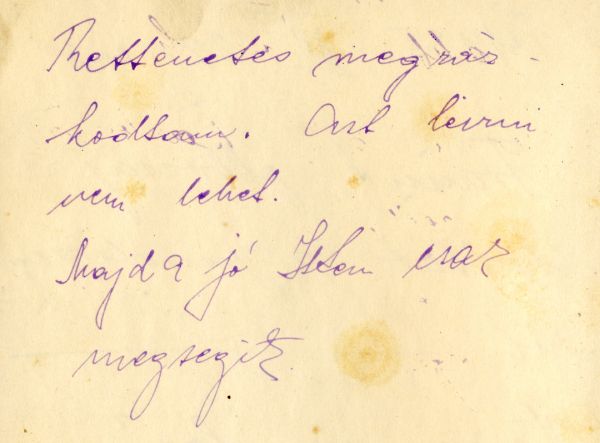 Rettenetes megráz-
kodtam. Azt leirni
nem lehet.
Majd a jó Isten csak
megsegit.